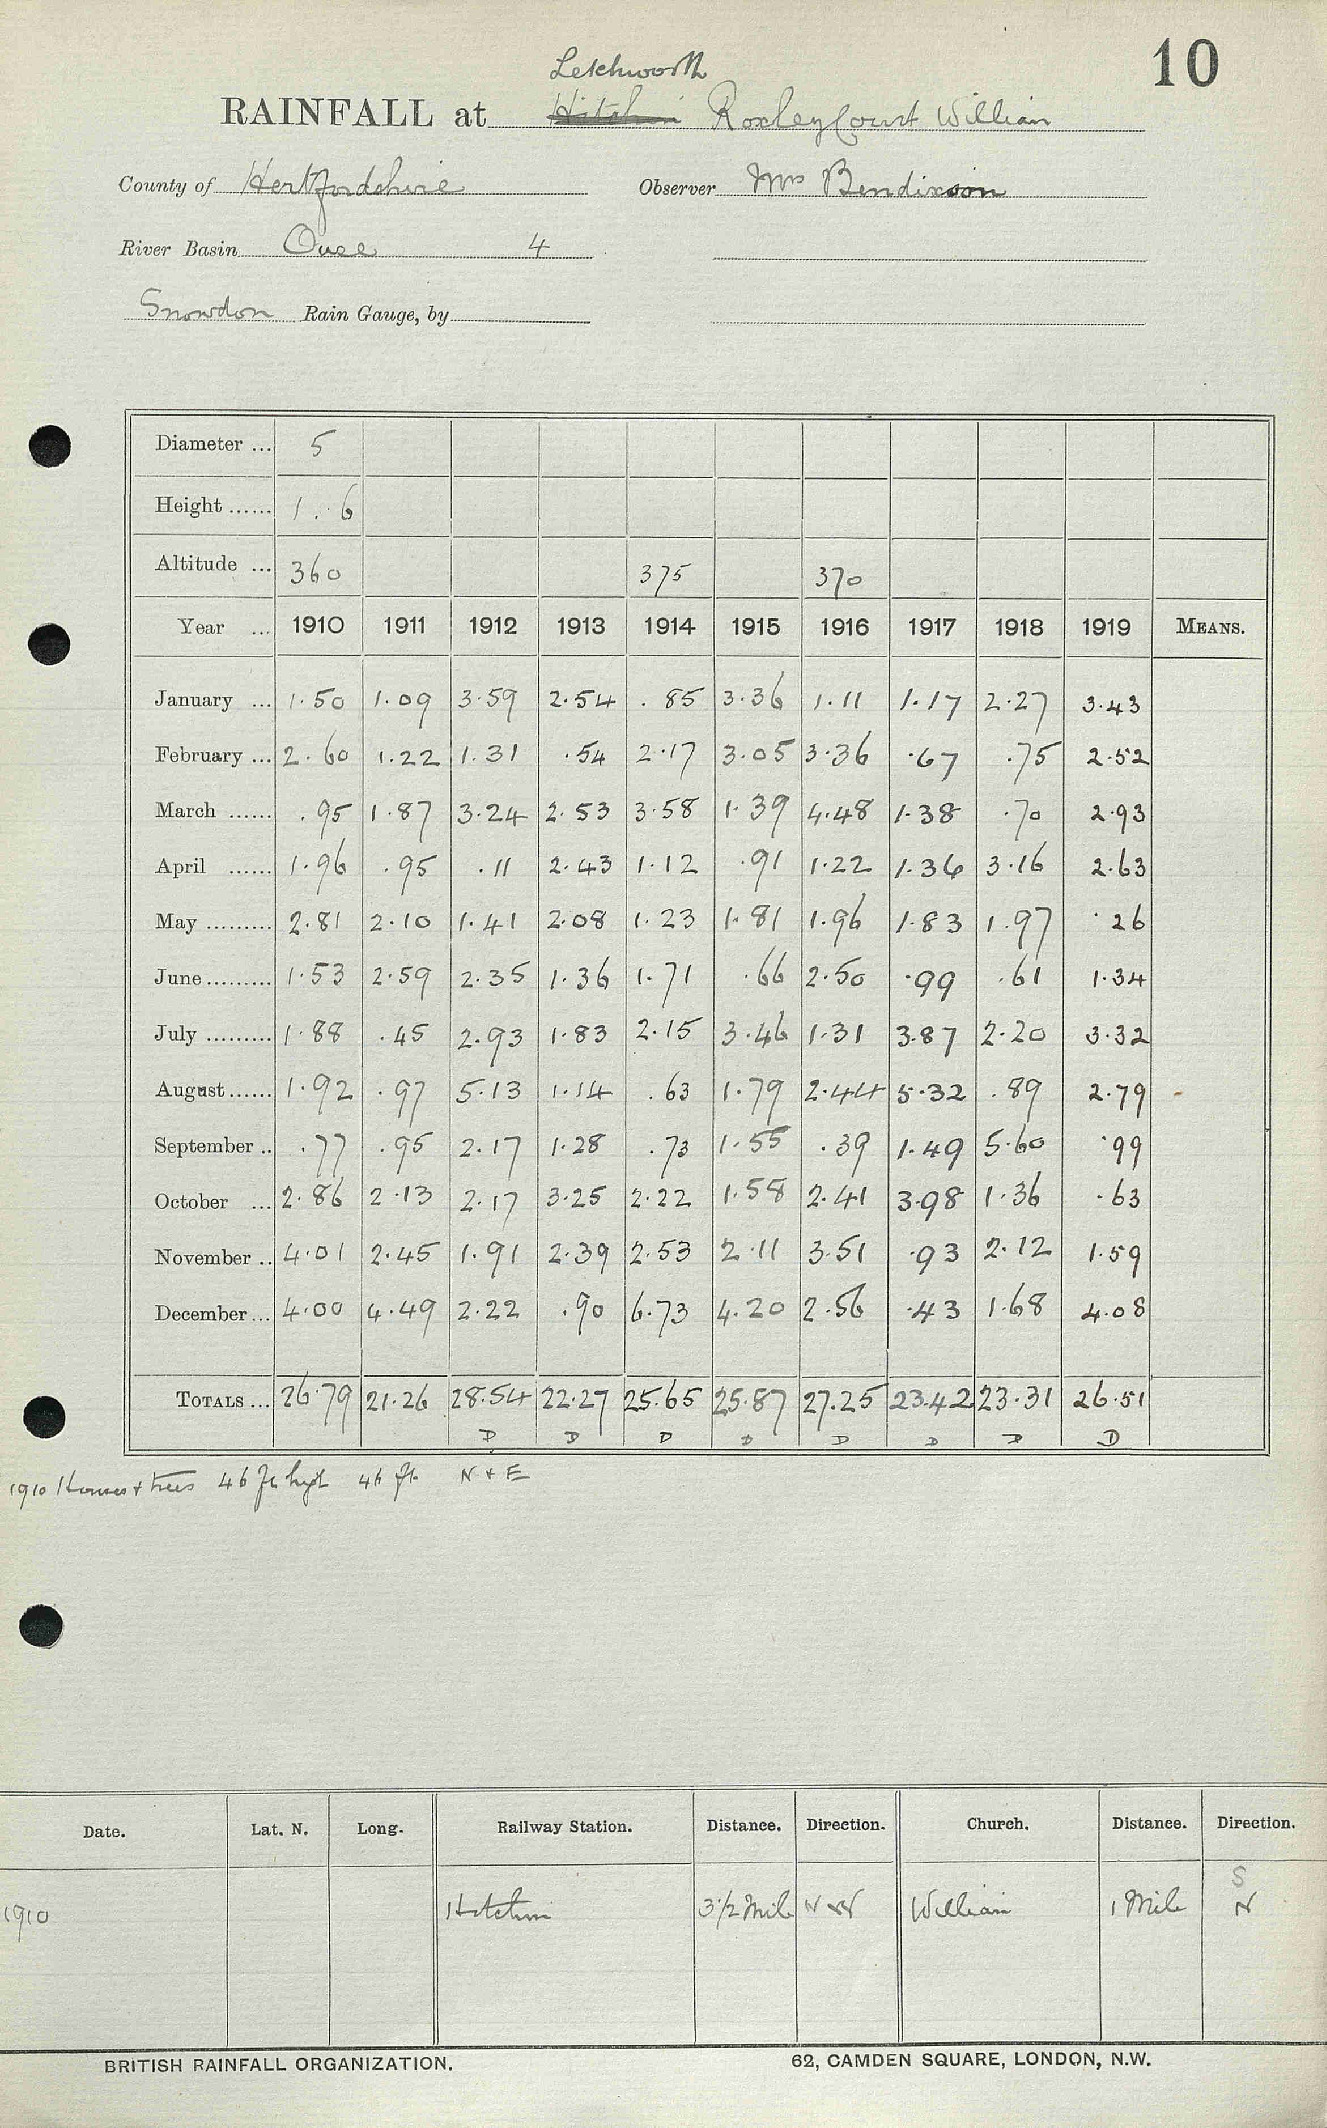 10
Letchworth
RAINFALL at Hitchin Roxley Court Willian
County of Hertfordshire Observer Mrs Bendixson
River Basin Ouse 4
Snowdon Rain Gauge, by
Diameter ... 5
Height ...... 1 . 6
Altitude ... 360 375 370
Year ... 1910 1911 1912 1913 1914 1915 1916 1917 1918 1919 MEANS.
January ... 1.50 1.09 3.59 2.54 .85 3.36 1.11 1.17 2.27 3.43
February ... 2.60 1.22 1.31 .54 2.17 3.05 3.36 .67 .75 2.52
March ...... .95 1.87 3.24 2.53 3.58 1.39 4.48 1.38 .70 2.93
April ...... 1.96 .95 .11 2.43 1.12 .91 1.22 1.36 3.16 2.63
May ......... 2.81 2.10 1.41 2.08 1.23 1.81 1.96 1.83 1.97 .26
June ......... 1.53 2.59 2.35 1.36 1.71 .66 2.50 .99 .61 1.34
July ......... 1.88 .45 2.93 1.83 2.15 3.46 1.31 3.87 2.20 3.32
August ...... 1.92 .97 5.13 1.14 .63 1.79 2.44 5.32 .89 2.79
September .. .77 .95 2.17 1.28 .73 1.55 .39 1.49 5.60 .99
October ... 2.86 2.13 2.17 3.25 2.22 1.58 2.41 3.98 1.36 .63
November .. 4.01 2.45 1.91 2.39 2.53 2.11 3.51 .93 2.12 1.59
December ... 4.00 4.49 2.22 .90 6.73 4.20 2.56 .43 1.68 4.08
TOTALS ... 26.79 21.26 28.54 22.27 25.65 25.87 27.25 23.42 23.31 26.51
D D D D D D D D
1910 Houses & trees 46 ft high 46 ft. N & E
Date. Lat. N. Long. Railway Station. Distance. Direction. Church. Distance. Direction.
S
1910 Hitchin 3 1/2 Mile N W Willian 1 Mile N
BRITISH RAINFALL ORGANIZATION. 62, CAMDEN SQUARE, LONDON, N.W.